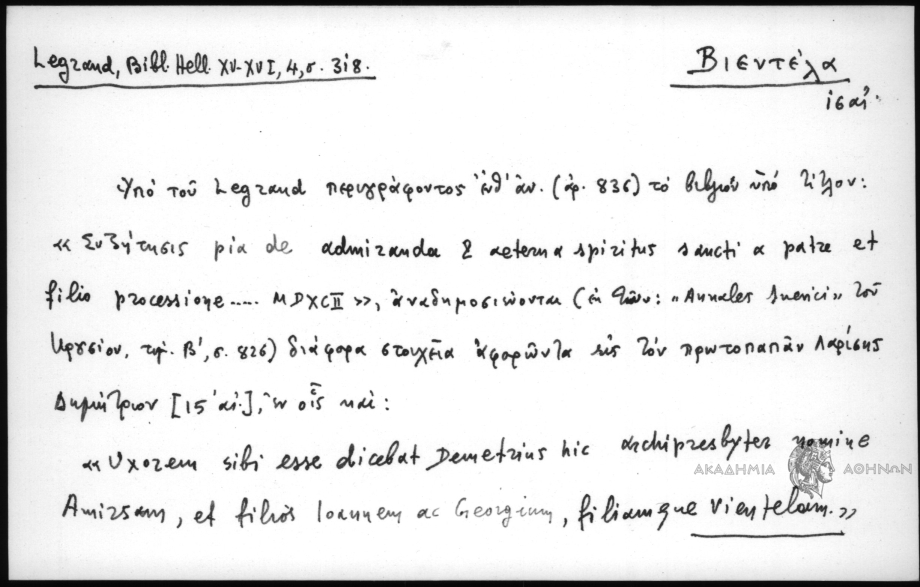 Legrand, Bibl. Hell. XV-XVI, 4, σ. 318.
Βιεντέλα
ις αἰ.
Ὑπὸ τοῦ Legrand περιγράφοντος ἐνθ' ἀν. (ἀρ. 836) τὸ βιβλίον ὑπὸ τίτλον:
« Συζήτησις pia de admiranda & aeterna spiritus sancti a patre et
filio processione..... MDXCII », ἀναδημοσιεύονται (ἐκ τῶν: „Annales Suevici„ τοῦ
Κρουσίου, τόμ. Β', σ. 826) διάφορα στοιχεῖα ἀφορῶντα εἰς τὸν πρωτοπαπᾶν Λαρίσης
Δημήτριον [15 αἰ.], ἐν οἷς καὶ:
« Uxorem sibi esse dicebat Demetrius hic archipresbyter nomine
Amirsam, et filios Ioannem ac Georgium, filiamque Vientelam. »
ΑΚΑΔΗΜΙΑ ΑΘΗΝΩΝ